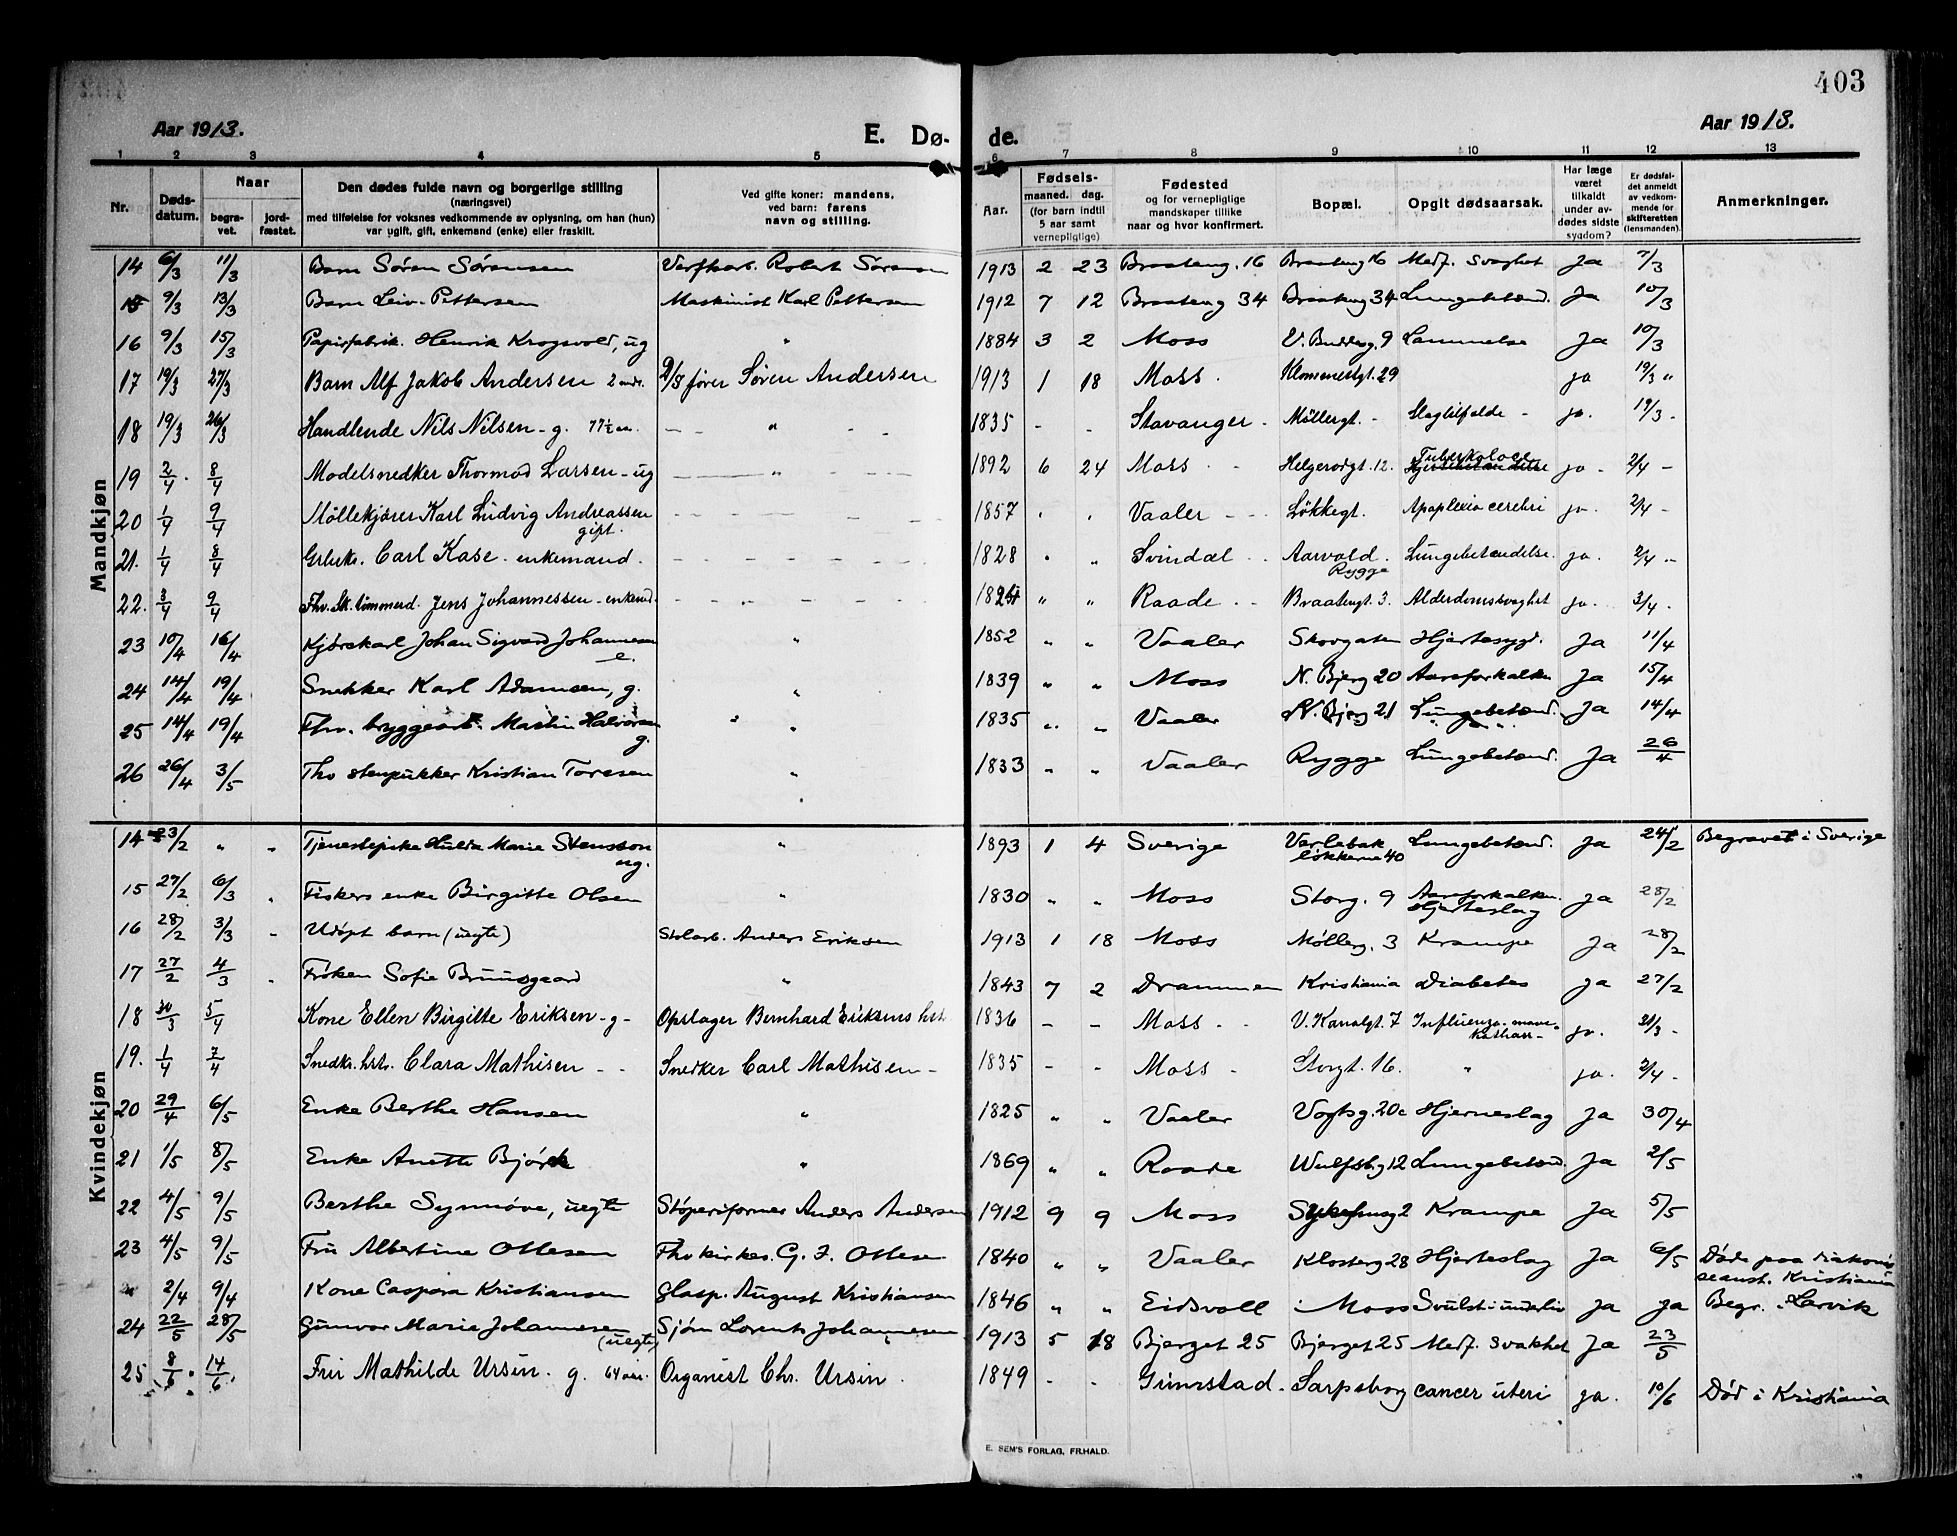 403
Aar 1913. E. Dø- de. Aar 1913.
1 2 3 4 5 6 7 8 9 10 11 12 13
Nr. Døds-datum. Naar begra-vet. jord-fæstet. Den dødes fulde navn og borgerlige stilling (næringsvei) med tilføielse for voksnes vedkommende av oplysning, om han (hun) var ugift, gift, enkemand (enke) eller fraskilt. Ved gifte koner: mandens, ved barn: farens navn og stilling. Aar. Fødsels- maaned. dag. (for barn indtil 5 aar samt vernepligtige) Fødested og for vernepligtige mandskaper tillike naar og hvor konfirmert. Bopæl. Opgit dødsaarsak. Har læge været tilkaldt under av-dødes sidste sygdom? Er dødsfal-det anmeldt av vedkom-mende for skifteretten (lensmanden). Anmerkninger.
Mandkjøn
14 6/3 11/3 Barn Søren Sørensen Verftarb. Robert Sørensen 1913 2 23 Braateng. 16 Braateng 16 Medf. Svaghet Ja 7/3
15 9/3 13/3 Barn Leiv Pettersen Maskinist Karl Pettersen 1912 7 12 Braateng 34 Braateng 34 Lungebetænd. Ja 10/3
16 9/3 15/3 Papirfabrik. Henrik Krogsvold, ug " 1884 3 2 Moss V. Buddesg. 9 Lammelse Ja 10/3
17 19/3 27/3 Barn Alf Jakob Andersen 2 mdr. D/S fører Søren Andersen 1913 1 18 Moss. 29 ja 19/3 "
18 19/3 26/3 Handlende Nils Nilsen - g. 77½ aar. " 1835 - - Stavanger - Møllergt. - Slagtilfælde - ja. 19/3 -
19 2/4 8/4 Modelsnedker Thormod Larsen - ug " 1892 6 24 Moss Helgerødgt. 12. Tuberkolose ja - 2/4 -
20 1/4 9/4 Møllekjører Karl Ludvig Andreassen gift. 1857 Vaaler Løkkegt. Apoplexia cerebri ja. 2/4 -
21. 1/4 8/4 Carl Kase - enkemand. 1828 Svindal Aarvold. Rygge Lungebetændelse. ja. 2/4 -
22. 3/4 9/4 Fhv. Sk. tømmerd. Jens Johannessen - enkemd. 1824 " " Raade Braatengt. 3. Alderdomssvaghet ja. 3/4.
23 10/4 16/4 Kjørekarl Johan Sigvard Johannesen e. " 1852 " " Vaaler Skovgaten Hjertesygd. Ja 11/4
24 14/4 19/4 Snekker Karl Adamsen, g. " 1839 " " Moss N. Bjerg 20 Aareforkalkn Ja 15/4
25 14/4 19/4 Fhv. bryggearb. Martin Halvorsen g. " 1835 " " Vaaler N. Bjerg 21 Lungebetænd. Ja 14/4
26 26/4 3/5 Fhv stenpukker Kristian Toresen " 1833 " " Vaaler Rygge Lungebetænd. Ja 26/4
Kvindekjøn
14 23/2 " " Tjenestepike Hulda Marie Stensson ug. " 1893 1 4 Sverige Varlebak løkkerne 40 Lungebetænd. Ja 24/2 Begravet i Sverige
15 27/2 6/3 " Fiskers enke Birgitte Olsen " 1830 " " Moss Storg. 9 Aareforkalkn. Hjerteslag Ja 28/2
16 28/2 3/3 " Udøpt barn (uegte) Stolarb. Anders Eriksen 1913 1 18 Moss Møllerg. 3 Krampe Ja 28/2
17 27/2 4/3 " Frøken Sofie Bruusgaard " 1843 7 2 Drammen Kristiania Diabetes Ja 27/2
18 30/3 5/4 Kone Ellen Birgitte Eriksen - g - Opslager Bernhard Eriksens hst. 1836 - - Moss V. Kanalgt. 7 Influenza - mave-katharr - ja. 31/3 -
19. 1/4 7/4 Snedk. hst. Clara Mathisen - - Snedker Carl Mathisen - 1835 - - Moss - Storgt. 16. " ja. 2/4 -
20 29/4 6/5 Enke Berthe Hansen " 1825 " " Vaaler Vogtsg. 20c Hjerneslag Ja 30/4
21 1/5 8/5 Enke Anette Bjørk " 1869 " " Raade Wulfsbg 12 Lungebetænd. Ja 2/5
22 4/5 9/5 Berthe Synnøve, uegte Støperiformer Anders Andersen 1912 9 9 Moss Sykehusg 2 Krampe Ja 5/5
23 4/5 9/5 Fru Albertine Ottesen Fhv kirkes. G. J. Ottese 1840 " " Vaaler Klosterg 28 Hjerteslag Ja 6/5 Døde paa diakonis seanst. Kristiania
2/4 9/4 Kone Caspora Kristiansen Glasp. August Kristiansen 1846 " " Eidsvoll Moss Svulst i underliv Ja Ja Begr. i Larvik
24 22/5 28/5 Gunvor Marie Johannesen (uegte) Sjøm Lorents Johannesen 1913 5 18 Bjerget 25 Bjerget 25 Medf. svakhet Ja 23/5
25 8/6 14/6 Fru Mathilde Ursin - g. 64 aar. Organist Chr. Ursin. 1849 - - Grimstad. Sarpsborg cancer uteri ja. 10/6 Død i Kristiania
E. SEM'S FORLAG, FR.HALD.